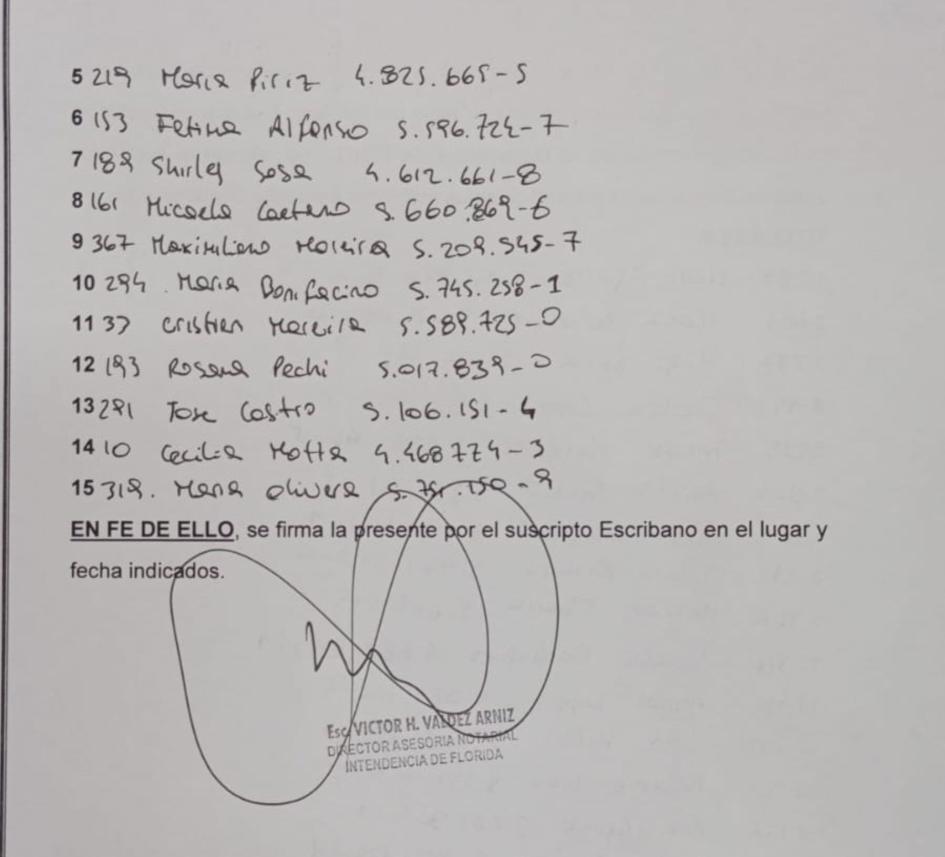 5 219 Maria Piriz 4.825.665-5
6 153 Fatima Alfonso 5.596.724-7
7 189 Shirley Sosa 4.612.661-8
8 161 Micaela Caetano 5.660.869-6
9 367 Maximiliano Moreira 5.209.545-7
10 294 Maria Bonifacino 5.745.258-1
11 37 Cristian Moreira 5.589.725-0
12 193 Rosana Pechi 5.017.839-0
13 291 Jose Castro 5.106.151-4
14 10 Cecilia Motta 4.468.774-3
15 319. Maria Olivera
EN FE DE ELLO, se firma la presente por el suscripto Escribano en el lugar y
fecha indicados.
Esc. VICTOR H. VALDEZ ARNIZ
DIRECTOR ASESORIA NOTARIAL
INTENDENCIA DE FLORIDA